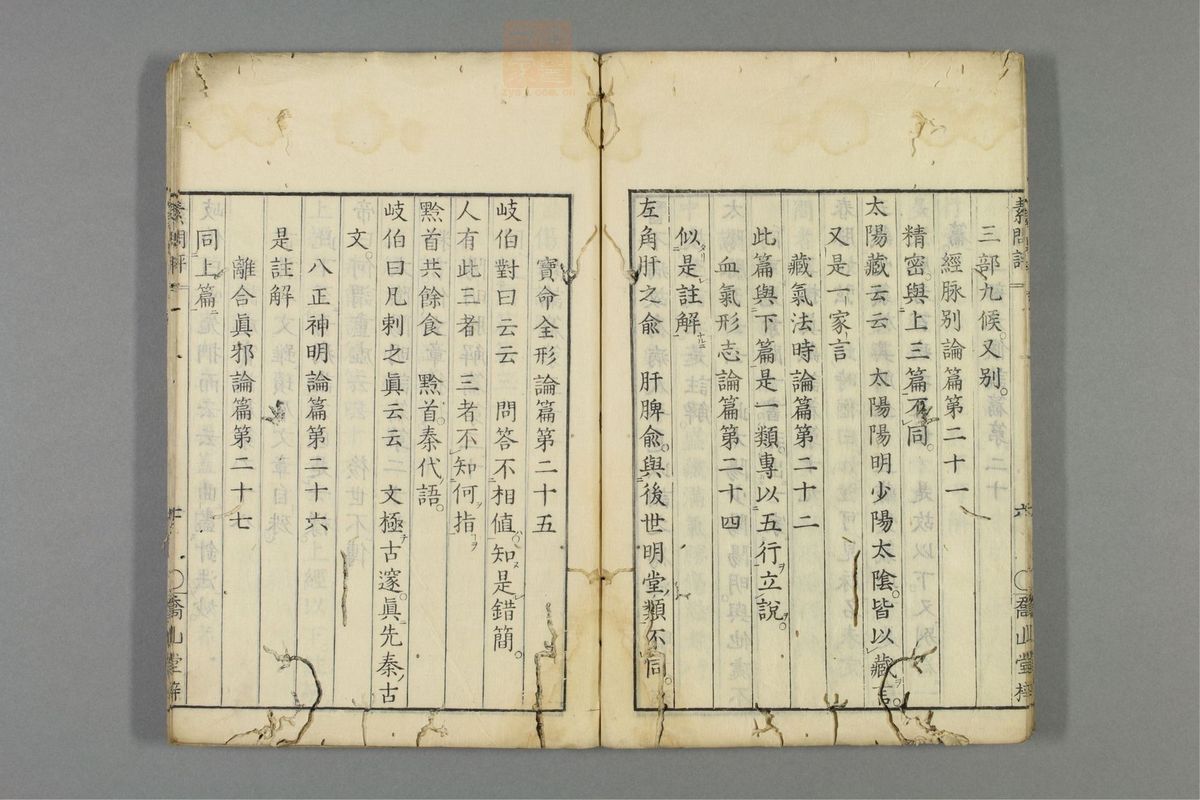 素問評
三部九候。又別。
經脉別論篇第二十一
精密。與上三篇不同。
太陽藏云云　太陽陽明少陽太陰。皆以藏言。
又是一家言
藏氣法時論篇第二十二
此篇與下篇是一類。專以五行立說。
血氣形志論篇第二十四
似是註解
左角肝之兪　肝脾兪。與後世明堂類不同。
六
喬山堂梓
寶命全形論篇第二十五
岐伯對曰云云　問答不相值。知是錯簡。
人有此三者　三者不知何指
黔首共餘食　黔首。秦代語。
岐伯曰凡刺之眞云云　文極古邃。眞先秦古
文。
八正神明論篇第二十六
是註解
離合眞邪論篇第二十七
同上篇
素問評
喬山堂梓